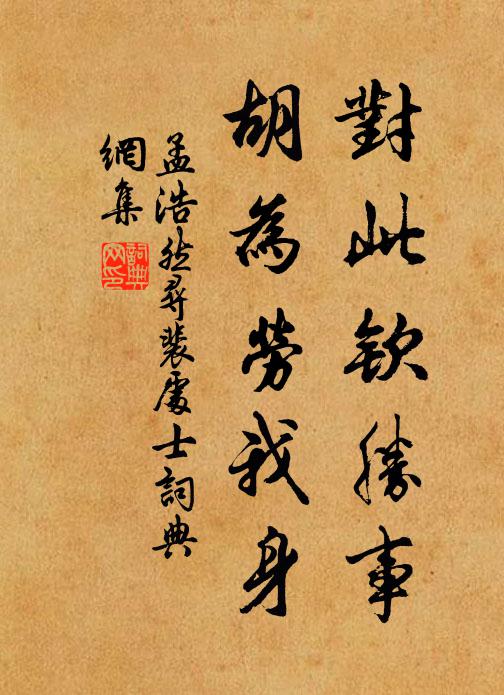 對此欽勝事
胡為勞我身
孟浩然尋裴處士詞典
網集
詞典
网印